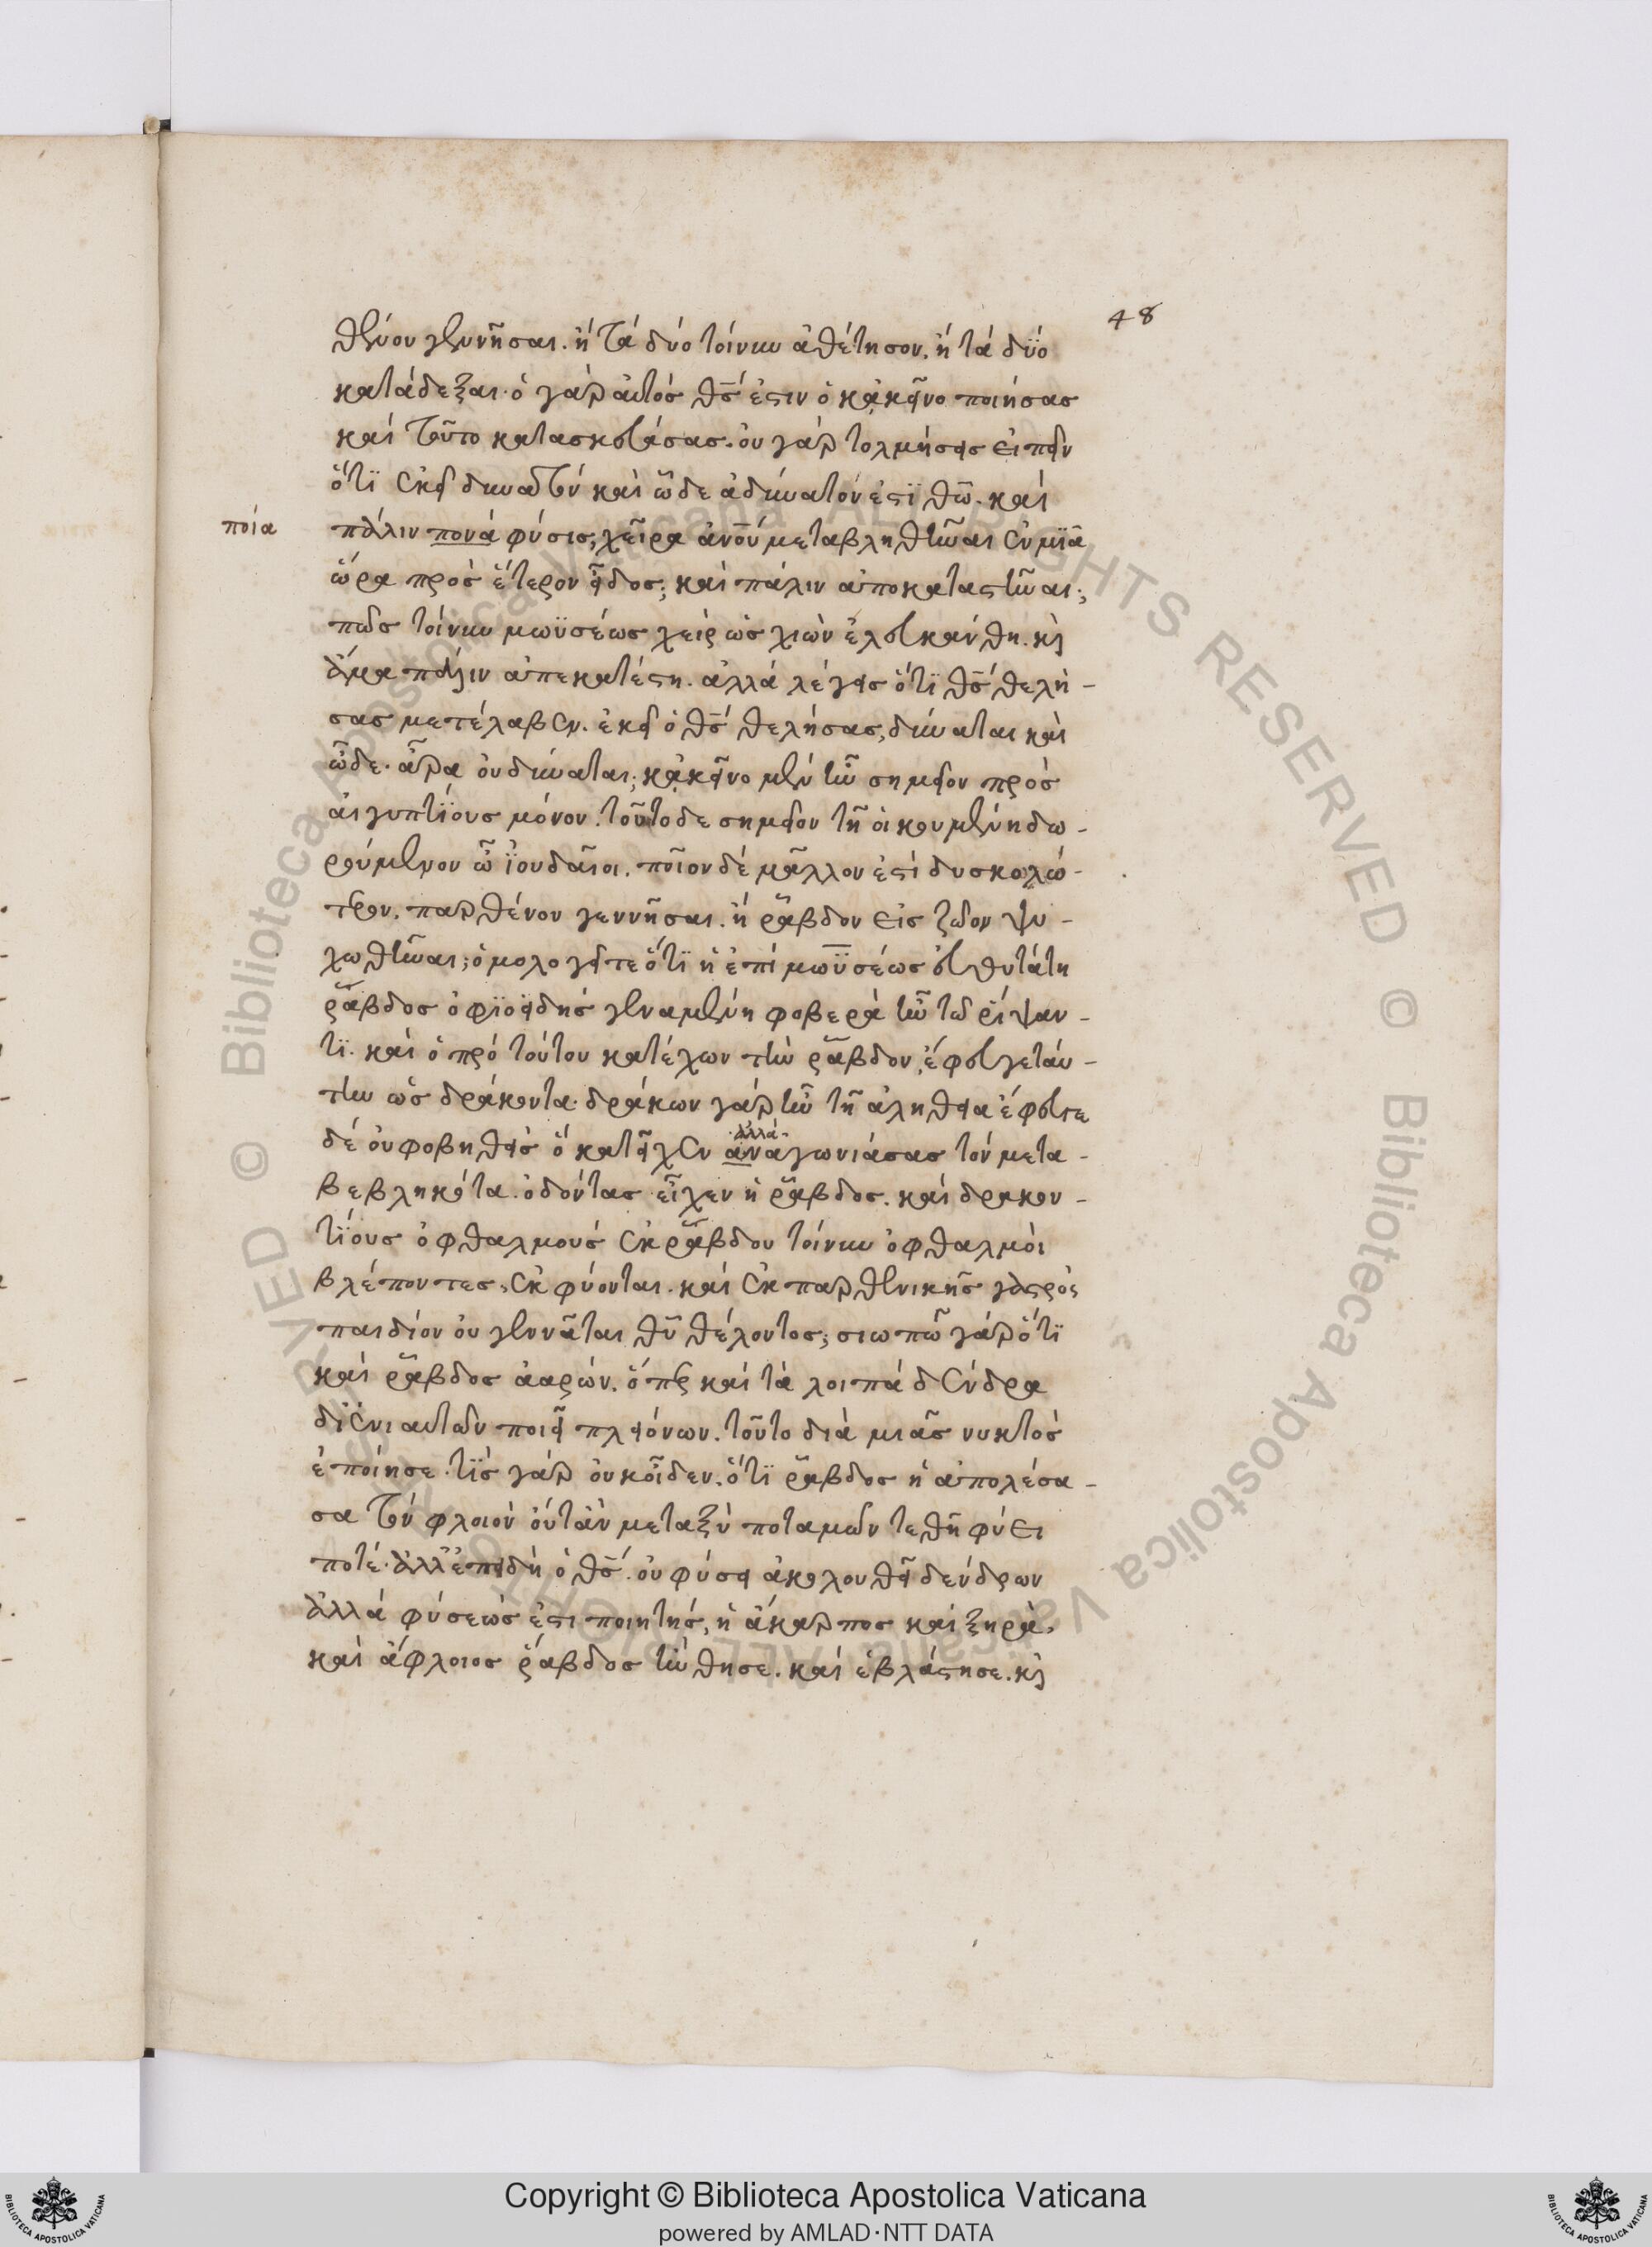 48
θένον γεννῆσαι. ἢ τὰ δύο τοίνυν ἀθέτησον, ἢ τὰ δύο
κατάδεξαι· ὁ γὰρ αὐτός θς ἐστιν ὁ κἀκεῖνο ποιήσας
καὶ τοῦτο κατασκευάσας. οὐ γὰρ τολμήσεις εἰπεῖν
ὅτι ἐκεῖ δυνατὸν καὶ ὧδε ἀδύνατόν ἐστι θῶ. καὶ
ποία
πάλιν πονὰ φύσις, χεῖρα ἀνου μεταβληθῆναι ἐν μιᾷ
ὥρᾳ πρὸς ἕτερον εἶδος; καὶ πάλιν ἀποκαταστῆναι;
πῶς τοίνυν μωϋσέως χεὶρ ὡς χιὼν ἐλευκάνθη. κὶ
ἅμα πάλιν ἀπεκατέστη. ἀλλὰ λέγεις ὅτι θς θελή-
σας μετέλαβεν. ἐκεῖ ὁ θς θελήσας, δύναται καὶ
ὧδε· ἆρα οὐ δύναται; κἀκεῖνο μὲν ἦν σημεῖον πρὸς
αἰγυπτίους μόνον. τοῦτο δε σημεῖον τῇ οἰκουμένῃ δω-
ρούμενον ὦ ἰουδαῖοι. ποῖον δέ μᾶλλον ἐστὶ δυσκολώ-
τερον. παρθένον γεννῆσαι. ἢ ῥάβδον εἰς ζῶον ψυ-
χωθῆναι; ὁμολογεῖτε ὅτι ἡ ἐπὶ μωϋσέως εὐθυτάτη
ῥάβδος ὀφιοειδὴς γεναμένη φοβερὰ ἦν τῷ ῥίψαν-
τι. καὶ ὁ πρὸ τούτου κατέχων τὴν ῥάβδον, ἔφευγε ταύ-
την ὡς δράκοντα· δράκων γὰρ ἦν τῇ ἀληθείᾳ ἔφευγε
δέ οὐ φοβηθεὶς ὃ κατεῖχεν ἀναγωνιάσας τὸν μετα-
ἀλλὰ
βεβληκότα. ὀδόντας εἶχεν ἡ ῥάβδος. καὶ δρακον-
τίους ὀφθαλμούς ἐκ ῥάβδου τοίνυν ὀφθαλμοὶ
βλέποντες, ἐκφύονται. καὶ ἐκ παρθενικῆς γαστρὸς
παιδίον οὐ γεννᾶται θῦ θέλοντος; σιωπῶ γὰρ ὅτι
καὶ ῥάβδος ἀαρών. ὅπερ καὶ τὰ λοιπά δένδρα
δι ἐνιαυτῶν ποιεῖ πλειόνων. τοῦτο διὰ μιᾶς νυκτὸς
ἐποίησε. τίς γὰρ οὐκ οἶδεν. ὅτι ῥάβδος ἡ ἀπολέσα-
σα τὸν φλοιὸν οὐτὰν μεταξὺ ποταμῶν τεθῆ φύει
ποτέ. ἀλλ' ἐπειδὴ ὁ θς. οὐ φύσει ἀκολουθεῖ δένδρων
ἀλλὰ φύσεώς ἐστι ποιητής, ἡ ἄκαρπος καὶ ξηρὰ,
καὶ ἄφλοιος ῥάβδος ἤνθησε. καὶ ἐβλάστησε. κὶ
Copyright © Biblioteca Apostolica Vaticana
powered by AMLAD·NTT DATA